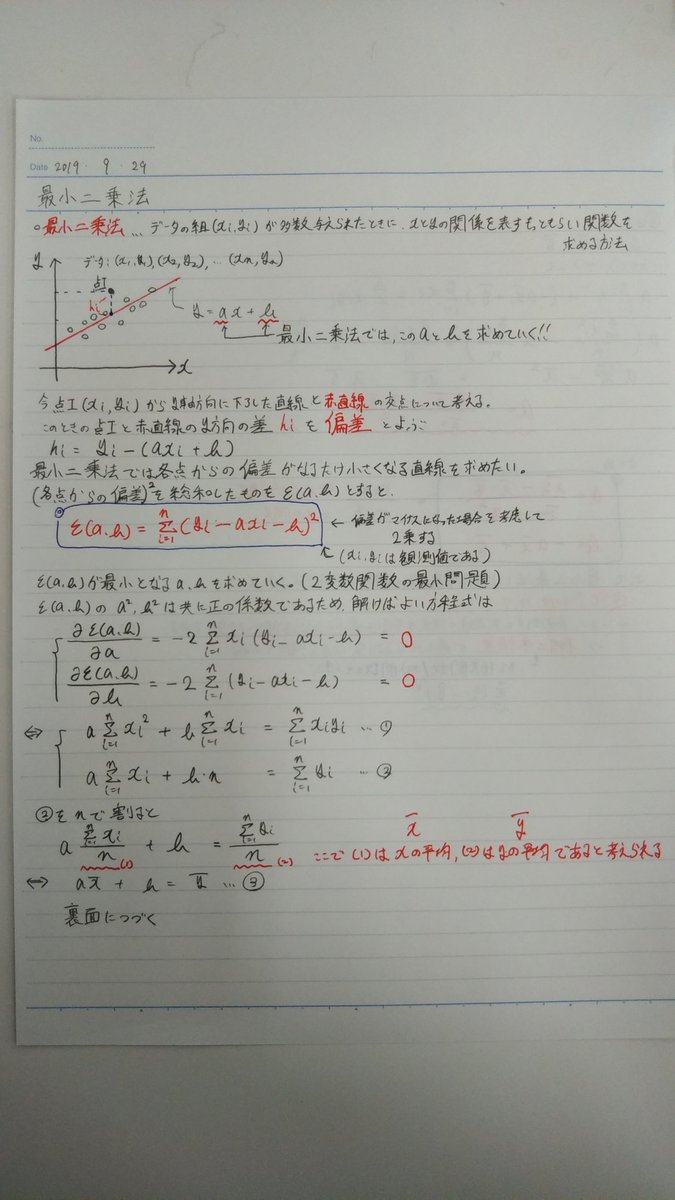 No.
Date 2019 ・ 9 ・ 29
最小二乗法
○最小二乗法… データの組(xi,yi)が多数与えられたときに、xとyの関係を表すもっともらしい関数を
求める方法
y データ:(x1,y1),(x2,y2),…(xn,yn)
点I
hi
y=ax+b
最小二乗法では,このaとbを求めていく!!
x
今点I(xi,yi)からy軸方向に下ろした直線と赤直線の交点について考える。
このときの点Iと赤直線のy方向の差hiを偏差とよぶ
hi = yi-(axi+b)
最小二乗法では各点からの偏差がなるだけ小さくなる直線を求めたい。
(各点からの偏差)²を総和したものをε(a,b)とすると、
ε(a,b) = Σ_{i=1}^{n}(yi-axi-b)² ← 偏差がマイナスになった場合を考慮して
2乗する
(xi,yiは観測値である)
ε(a,b)が最小となるa,bを求めていく。(2変数関数の最小問題)
ε(a,b)のa²,b²は共に正の係数であるため,解けばよい方程式は
∂ε(a,b)/∂a = -2Σ_{i=1}^{n} xi(yi-axi-b) = 0
∂ε(a,b)/∂b = -2Σ_{i=1}^{n} (yi-axi-b) = 0
⇔ aΣ_{i=1}^{n} xi² + bΣ_{i=1}^{n} xi = Σ_{i=1}^{n} xiyi …①
aΣ_{i=1}^{n} xi + b・n = Σ_{i=1}^{n} yi …②
②をnで割ると
a Σ_{i=1}^{n} xi/n (1) + b = Σ_{i=1}^{n} yi/n (2) x̄ ȳ
ここで(1)はxの平均,(2)はyの平均であると考えられる
⇔ ax̄ + b = ȳ …③
裏面につづく